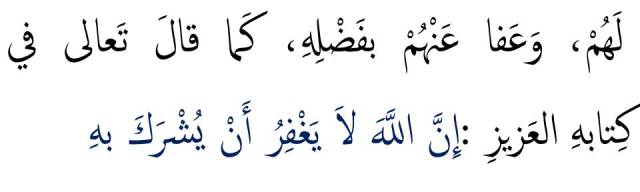 لَهُمْ، وَعَفا عَنْهُمْ بفَضْلِهِ، كَما قالَ تَعالى في
كِتابهِ العَزيزِ :إِنَّ اللَّهَ لاَ يَغْفِرُ أَنْ يُشْرَكَ بهِ